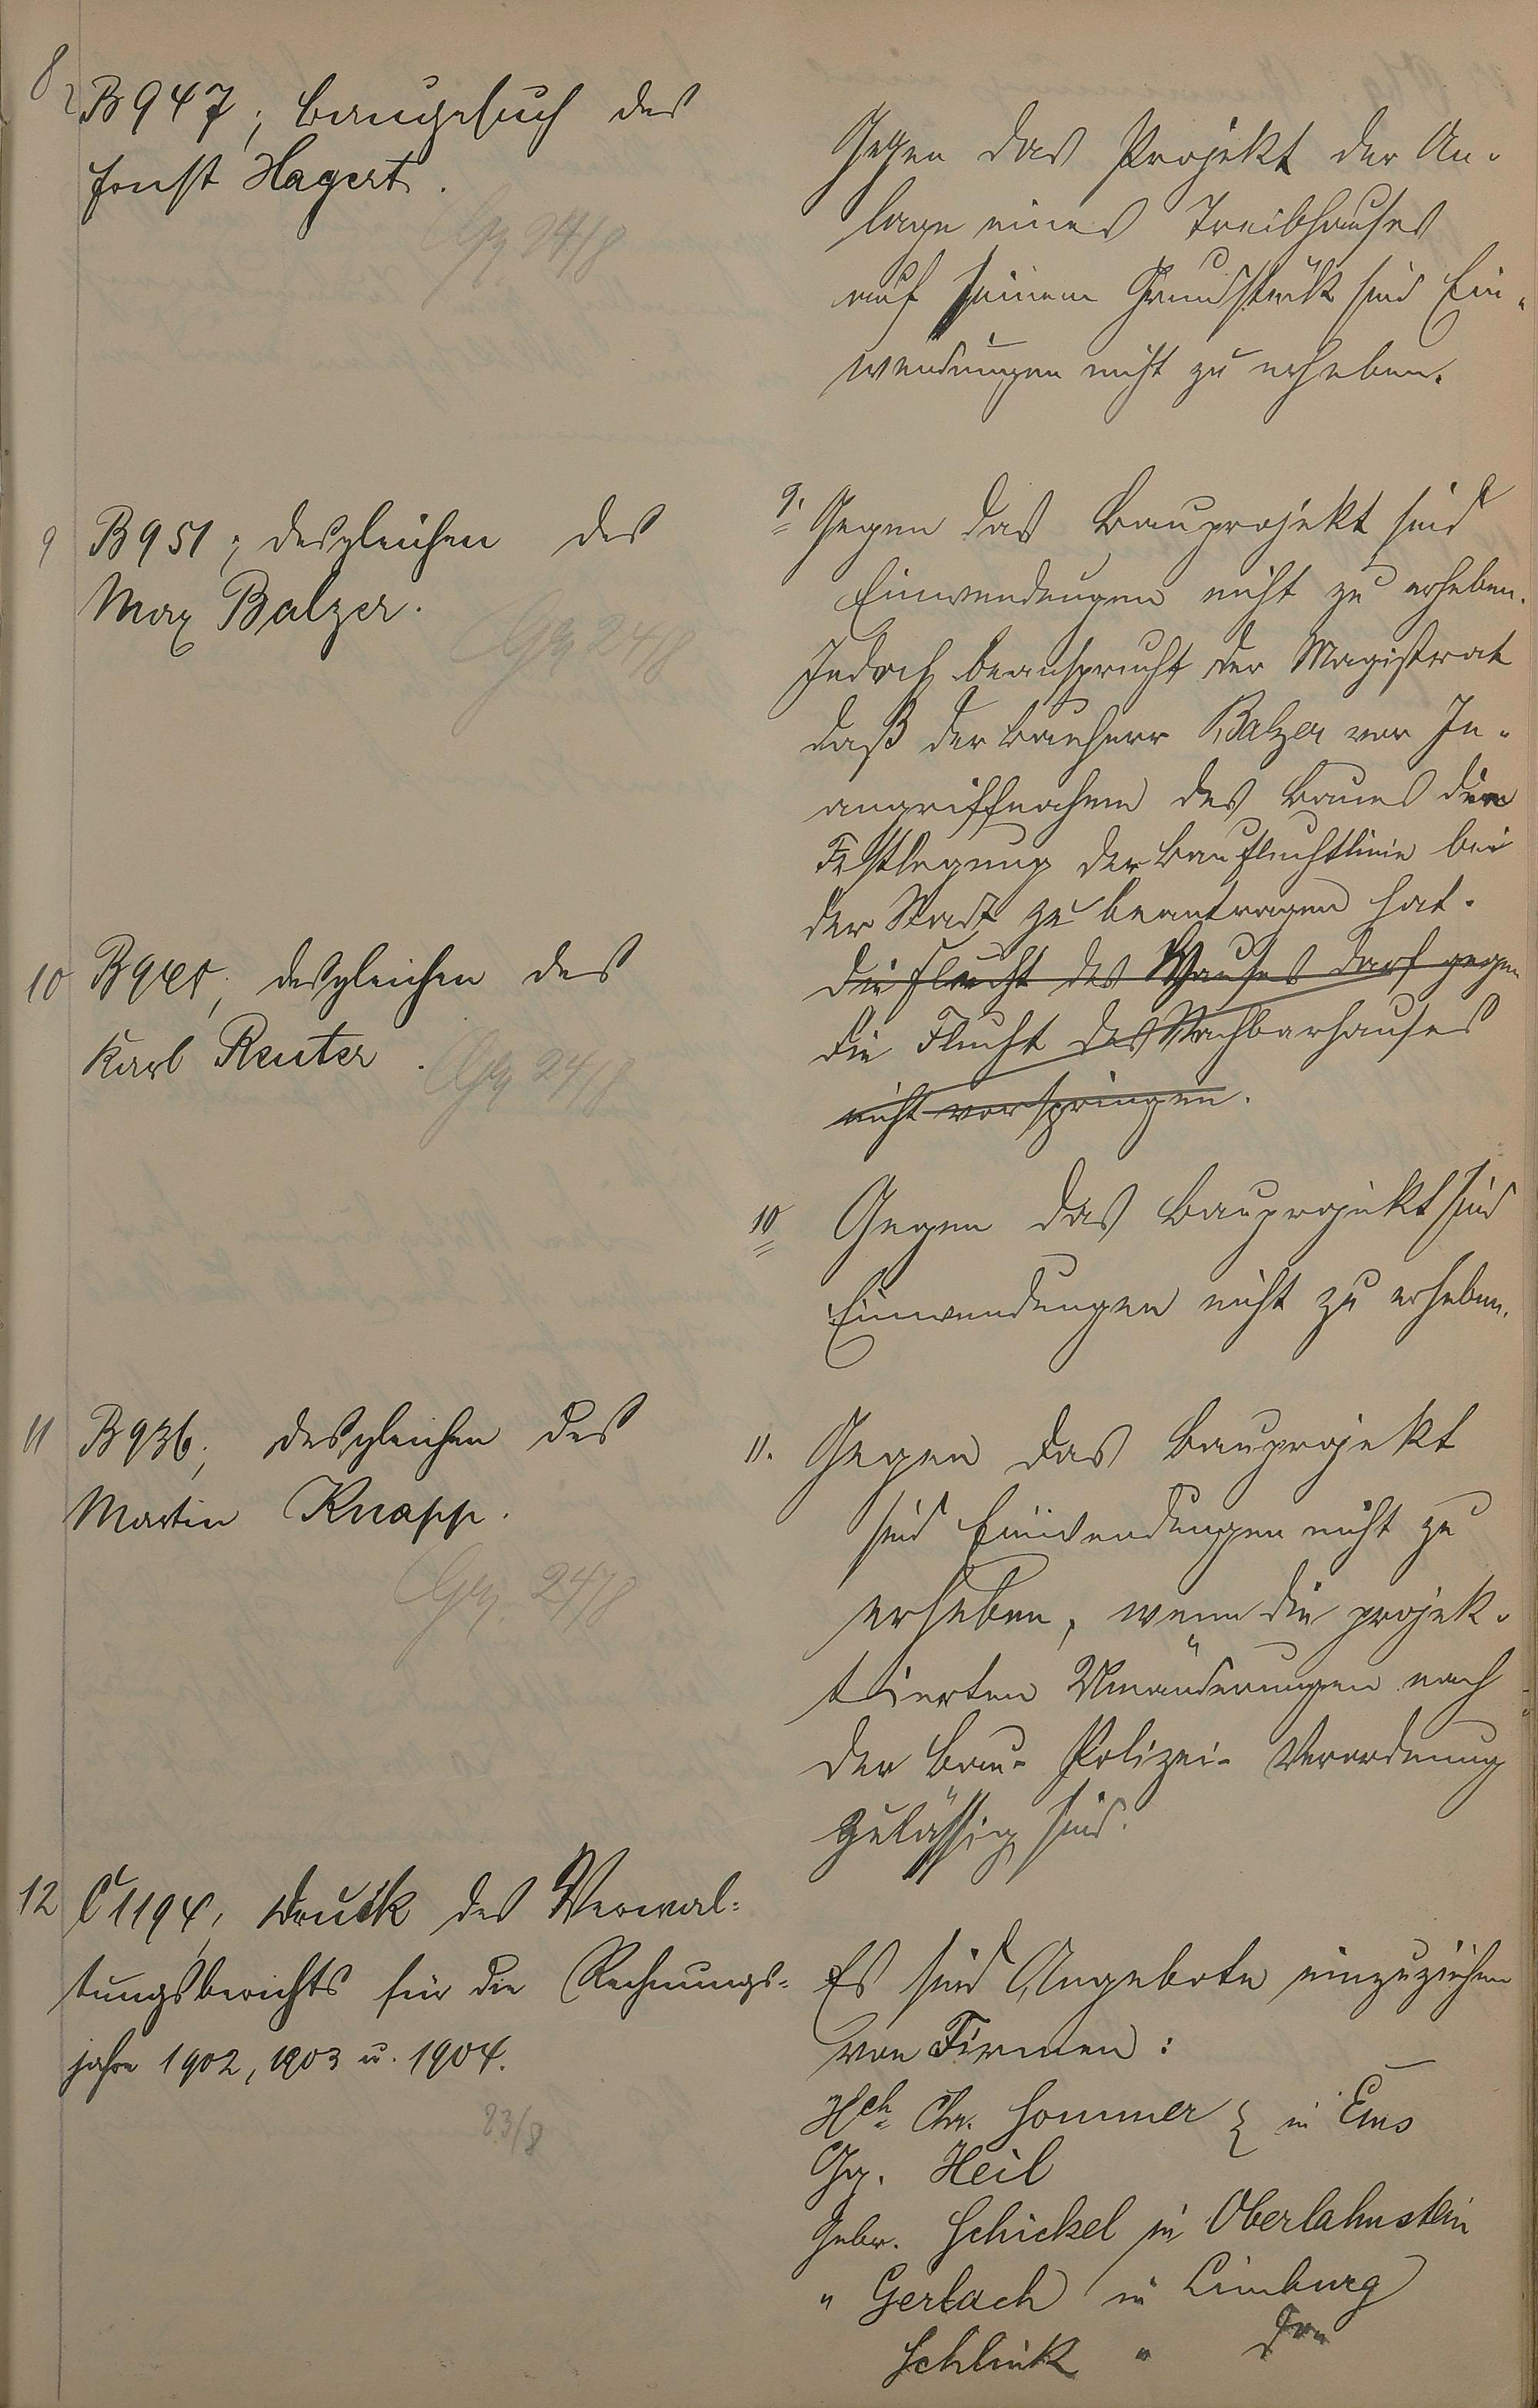 8
B 947; Baugesuch des
Ernst Hagert.
24/8
Gegen das Projekt der An-
lage eines Treibhauses
auf seinem Grundstück sind Ein-
wendungen nicht zu erheben.
9 B 951; desgleichen des
Max Balzer.
24/8
9. Gegen das Bauprojekt sind
Einwendungen nicht zu erheben.
Jedoch beansprucht der Magistrat
daß der Bauherr Balzer vor In-
angriffnahme des Baues die
Festlegung der Baufluchtlinie bei
der Stadt zu beantragen hat.
Die Flucht des Hauses darf gegen
die Flucht des Nachbarhauses
nicht vorspringen.
10 desgleichen des
Karl Reuter.
24/8
10 Gegen das Bauprojekt sind
Einwendungen nicht zu erheben.
11 B 936; desgleichen des
Martin Knapp.
24/8
11. Gegen das Bauprojekt
sind Einwendungen nicht zu
erheben, wenn die projek-
tierten Umänderungen nach
der Bau-Polizei-Verordnung
zulässig sind.
12 C 1194; Druck des Verwal-
tungsberichts für die Rechnungs-
jahre 1902, 1903 u. 1904.
23/8
Es sind Angebote einzuziehen
von Firmen:
Hch. Chr. Sommer } in Ems
Gg. Heil
Gebr. Schickel in Oberlahnstein
" Gerlach in Limburg
Schlink "